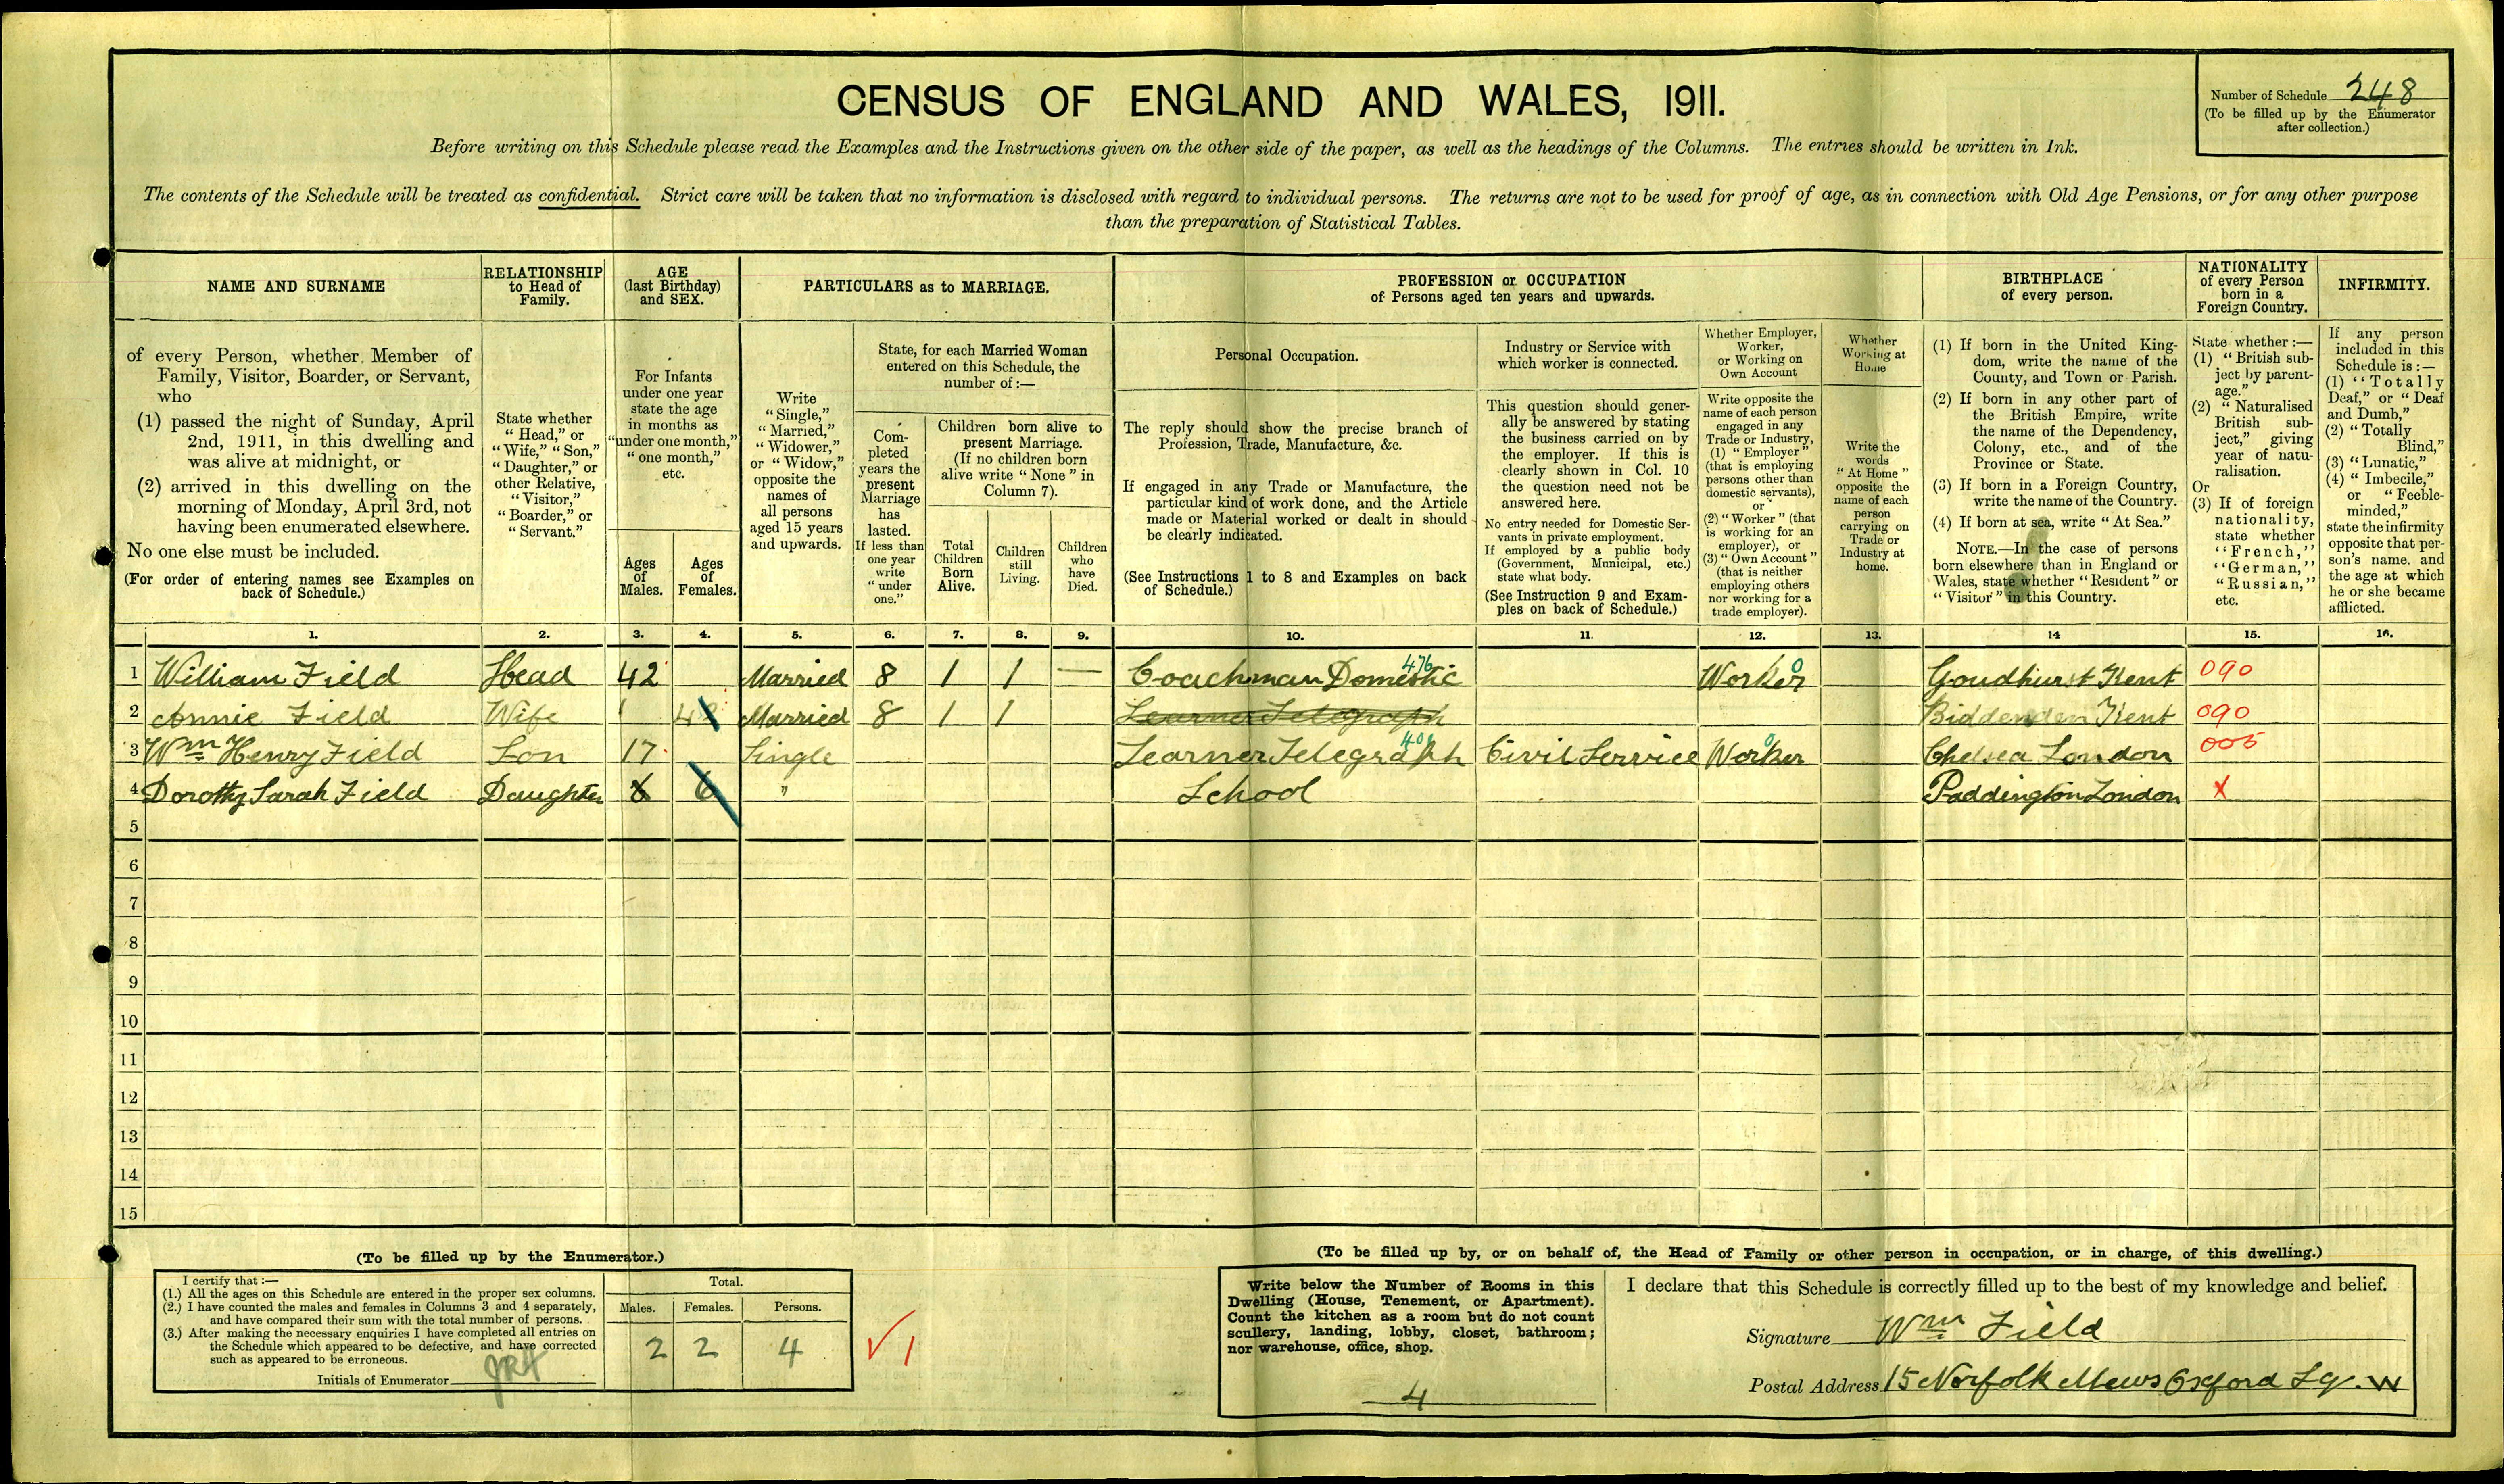 CENSUS OF ENGLAND AND WALES, 1911.
Number of Schedule 248
(To be filled up by the Enumerator
after collection.)
Before writing on this Schedule please read the Examples and the Instructions given on the other side of the paper, as well as the headings of the Columns. The entries should be written in Ink.
The contents of the Schedule will be treated as confidential. Strict care will be taken that no information is disclosed with regard to individual persons. The returns are not to be used for proof of age, as in connection with Old Age Pensions, or for any other purpose
than the preparation of Statistical Tables.
NAME AND SURNAME
of every Person, whether Member of
Family, Visitor, Boarder, or Servant,
who
(1) passed the night of Sunday, April
2nd, 1911, in this dwelling and
was alive at midnight, or
(2) arrived in this dwelling on the
morning of Monday, April 3rd, not
having been enumerated elsewhere.
No one else must be included.
(For order of entering names see Examples on
back of Schedule.)
RELATIONSHIP
to Head of
Family.
State whether
"Head," or
"Wife," "Son,"
"Daughter," or
other Relative,
"Visitor,"
"Boarder," or
"Servant."
AGE
(last Birthday)
and SEX.
For Infants
under one year
state the age
in months as
"under one month,"
"one month,"
etc.
Ages
of
Males.
Ages
of
Females.
PARTICULARS as to MARRIAGE.
Write
"Single,"
"Married,"
"Widower,"
or "Widow,"
opposite the
names of
all persons
aged 15 years
and upwards.
State, for each Married Woman
entered on this Schedule, the
number of :—
Com-
pleted
years the
present
Marriage
has
lasted.
If less than
one year
write
"under
one."
Children born alive to
present Marriage.
(If no children born
alive write "None" in
Column 7).
Total
Children
Born
Alive.
Children
still
Living.
Children
who
have
Died.
PROFESSION or OCCUPATION
of Persons aged ten years and upwards.
Personal Occupation.
The reply should show the precise branch of
Profession, Trade, Manufacture, &c.
If engaged in any Trade or Manufacture, the
particular kind of work done, and the Article
made or Material worked or dealt in should
be clearly indicated.
(See Instructions 1 to 8 and Examples on back
of Schedule.)
Industry or Service with
which worker is connected.
This question should gener-
ally be answered by stating
the business carried on by
the employer. If this is
clearly shown in Col. 10
the question need not be
answered here.
No entry needed for Domestic Ser-
vants in private employment.
If employed by a public body
(Government, Municipal, etc.)
state what body.
(See Instruction 9 and Exam-
ples on back of Schedule.)
Whether Employer,
Worker,
or Working on
Own Account
Write opposite the
name of each person
engaged in any
Trade or Industry,
(1) "Employer"
(that is employing
persons other than
domestic servants),
or
(2) "Worker" (that
is working for an
employer), or
(3) "Own Account"
(that is neither
employing others
nor working for a
trade employer).
Whether
Working at
Home
Write the
words
"At Home"
opposite the
name of each
person
carrying on
Trade or
Industry at
home.
BIRTHPLACE
of every person.
(1) If born in the United King-
dom, write the name of the
County, and Town or Parish.
(2) If born in any other part of
the British Empire, write
the name of the Dependency,
Colony, etc., and of the
Province or State.
(3) If born in a Foreign Country,
write the name of the Country.
(4) If born at sea, write "At Sea."
NOTE.—In the case of persons
born elsewhere than in England or
Wales, state whether "Resident" or
"Visitor" in this Country.
NATIONALITY
of every Person
born in a
Foreign Country.
State whether :—
(1) "British sub-
ject by parent-
age."
(2) "Naturalised
British sub-
ject," giving
year of natu-
ralisation.
Or
(3) If of foreign
nationality,
state whether
"French,"
"German,"
"Russian,"
etc.
INFIRMITY.
If any person
included in this
Schedule is :—
(1) "Totally
Deaf," or "Deaf
and Dumb,"
(2) "Totally
Blind,"
(3) "Lunatic,"
(4) "Imbecile,"
or "Feeble-
minded,"
state the infirmity
opposite that per-
son's name, and
the age at which
he or she became
afflicted.
1. 2. 3. 4. 5. 6. 7. 8. 9. 10. 11. 12. 13. 14 15. 16.
1 William Field Head 42 Married 8 1 1 — Coachman Domestic 476 Worker 0 Goudhurst Kent 090
2 Annie Field Wife Married 8 1 1 Learner Telegraph Biddenden Kent 090
3 Wm Henry Field Son 17 Single Learner Telegraph Civil Service Worker 0 Chelsea London 005
4 Dorothy Sarah Field Daughter 6 " School Paddington London X
5
6
7
8
9
10
11
12
13
14
15
(To be filled up by the Enumerator.)
I certify that :—
(1.) All the ages on this Schedule are entered in the proper sex columns.
(2.) I have counted the males and females in Columns 3 and 4 separately,
and have compared their sum with the total number of persons.
(3.) After making the necessary enquiries I have completed all entries on
the Schedule which appeared to be defective, and have corrected
such as appeared to be erroneous.
Initials of Enumerator
Total.
Males. Females. Persons.
2 2 4
√1
(To be filled up by, or on behalf of, the Head of Family or other person in occupation, or in charge, of this dwelling.)
Write below the Number of Rooms in this
Dwelling (House, Tenement, or Apartment).
Count the kitchen as a room but do not count
scullery, landing, lobby, closet, bathroom;
nor warehouse, office, shop.
4
I declare that this Schedule is correctly filled up to the best of my knowledge and belief.
Signature Wm Field
Postal Address 15 Norfolk Mews Oxford Sq. W